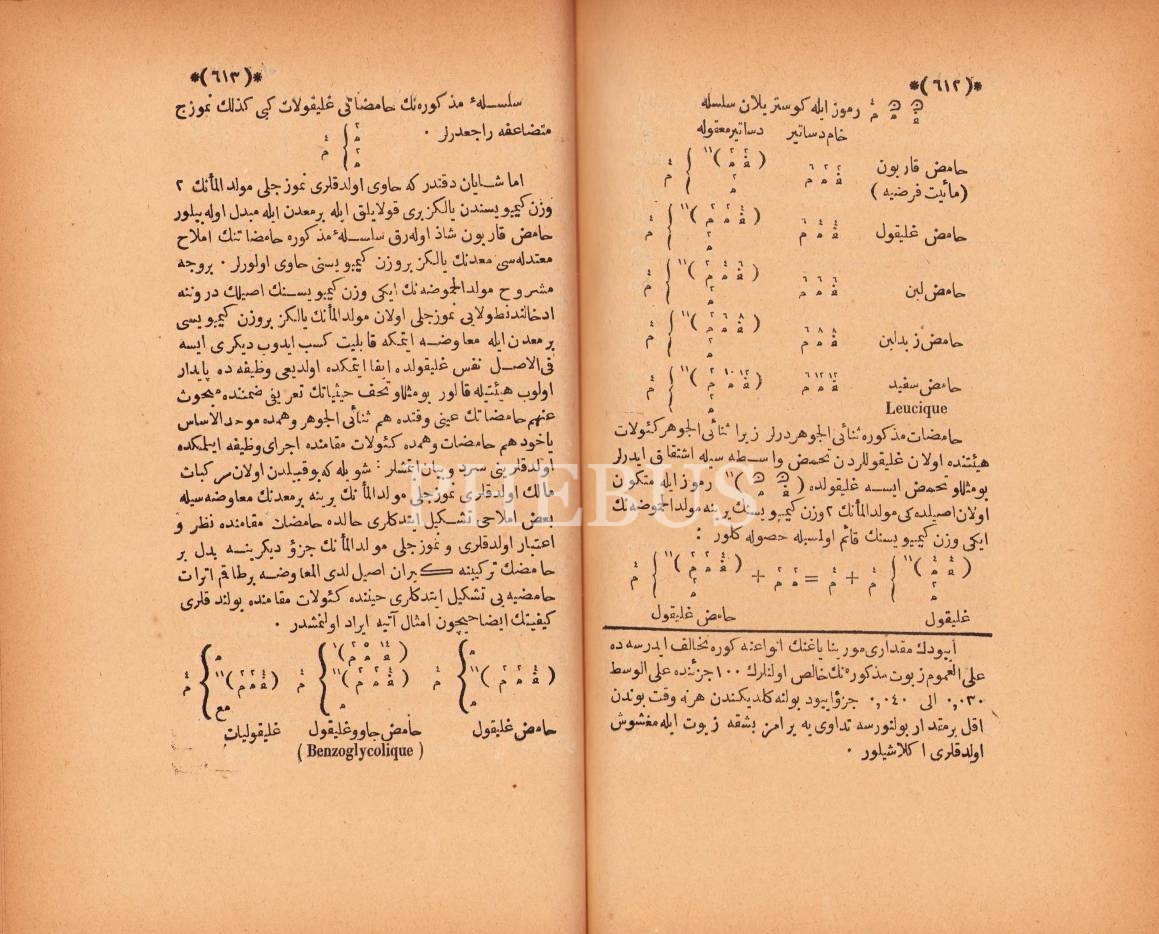 *(٦١٢)*
رموز ايله كوستريلان سلسله
خام دساتير دساتير معقوله
حامض قاربون
(مائيت فرضيه)
حامض غليقول
حامض لبن
حامض زبدلبن
حامض سفيد
Leucique
حامضات مذكوره ثنائی الجوهر درلر زيرا ثنائی الجوهر كئولات
هيئتنده اولان غليقوللردن تحمض واسطه سيله اشتقاق ايدرلر
بومثللو تحمض ايسه غليقولده رموز ايله متكون
اولان اصيلده كی مولد المأنك ٢ وزن كيميويسنك يرينه مولد الحموضه نك
ايكی وزن كيميويسنك قائم اولمسيله حصوله كلور :
غليقول حامض غليقول
آيبودك مقداری مورينا ياغنك انواعنه كوره تخالف ايدرسه ده
علی العموم زيوت مذكوره نك خالص اولنلرك ١٠٠ جزئنده علی الوسط
٠,٠٣٠ الی ٠,٠٤٠ جزؤ ايبود بولنه كلديكندن هر نه وقت بوندن
اقل بر مقدار بولنورسه تداوی يه يرامز بشقه زيوت ايله مغشوش
اولدقلری اكلاشيلور .
*(٦١٣)*
سلسلهٔ مذكوره نك حامضاتی غليقولات كبی كذلك نموزج
متضاعفه راجعدرلر .
اما شايان دقتدر كه حاوی اولدقلری نموزجلی مولد المأنك ٢
وزن كيميويسندن يالكز بری قولايلق ايله بر معدن ايله مبدل اوله بيلور
حامض قاربون شاذ اوله رق سلسلهٔ مذكوره حامضاتنك املاح
معتدله سی معدنك يالكز بر وزن كيميويسنی حاوی اولورلر . بروجه
مشروح مولد الحموضه نك ايكی وزن كيميويسنك اصيلك دروننه
ادخالندن طولايی نموزجلی اولان مولد المأنك يالكز بر وزن كيميويسی
بر معدن ايله معاوضه ايتمكه قابليت كسب ايدوب ديكری ايسه
فی الاصل نفس غليقولده ايفا ايتمكده اولديغی وظيفه ده پايدار
اولوب هيئتيله قالور بومثللو تحف حيثياتك تعريفی ضمننده مبحوث
عنهم حامضاتك عينی وقتده هم ثنائی الجوهر وهمده موحد الاساس
ياخود هم حامضات وهمده كئولات مقامنده اجرای وظيفه ايلمكده
اولدقلرينی سرد وبيان ايتمشلر : شويله كه بو قبيلدن اولان مركبات
مالك اولدقلری نموزجلی مولد المأنك برينه بر معدنك معاوضه سيله
بعض املاحی تشكيل ايتدكلری حالده حامضات مقامنده نظر و
اعتبار اولدقلری و نموزجلی مولد المأنك جزؤ ديكرينه بدل بر
حامضك تركيبنه كيران اصيل لدی المعاوضه بر طاقم اترات
حامضيه يی تشكيل ايتدكلری حينده كئولات مقامنده بولندقلری
كيفيتك ايضاحيچون امثال آتيه ايراد اولنمشدر .
حامض غليقول حامض جاووغليقول غليقوليات
(Benzoglycolique)
PHEBUS